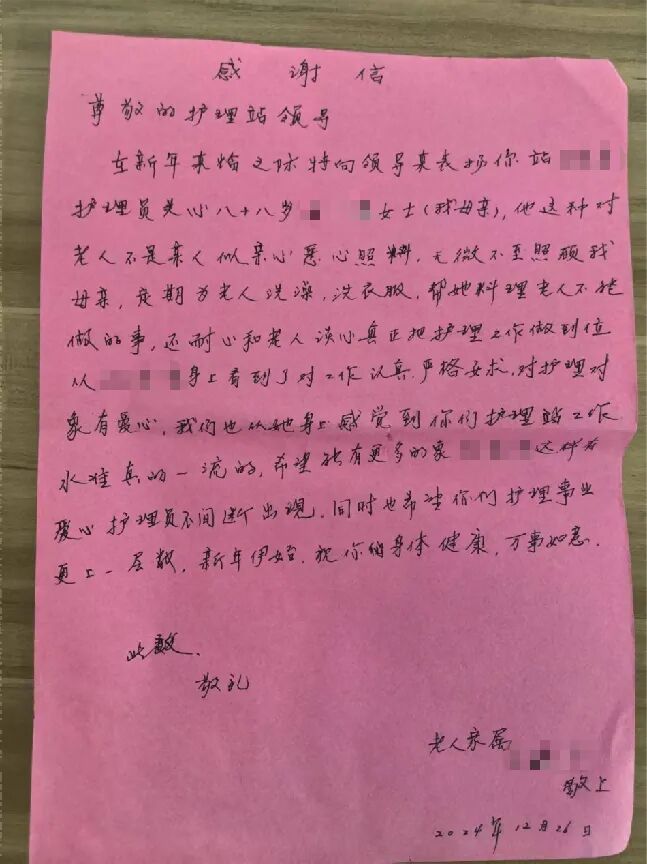 感谢信
尊敬的护理站领导
在新年来临之际特向领导来表扬你站
护理员关心八十八岁 女士(我母亲),他这种对
老人不是亲人似亲心悉心照料,无微不至照顾我
母亲,定期为老人洗澡,洗衣服,帮她料理老人不能
做的事,还耐心和老人谈心真正把护理工作做到位
从 身上看到了对工作认真严格要求,对护理对
象有爱心,我们也从她身上感觉到你们护理站工作
水准真的一流的,希望能有更多的象 这样有
爱心护理员不间断出现,同时也希望你们护理事业
更上一层楼,新年伊始,祝你们身体健康,万事如意.
此致.
敬礼
老人家属
敬上
2024年12月26日